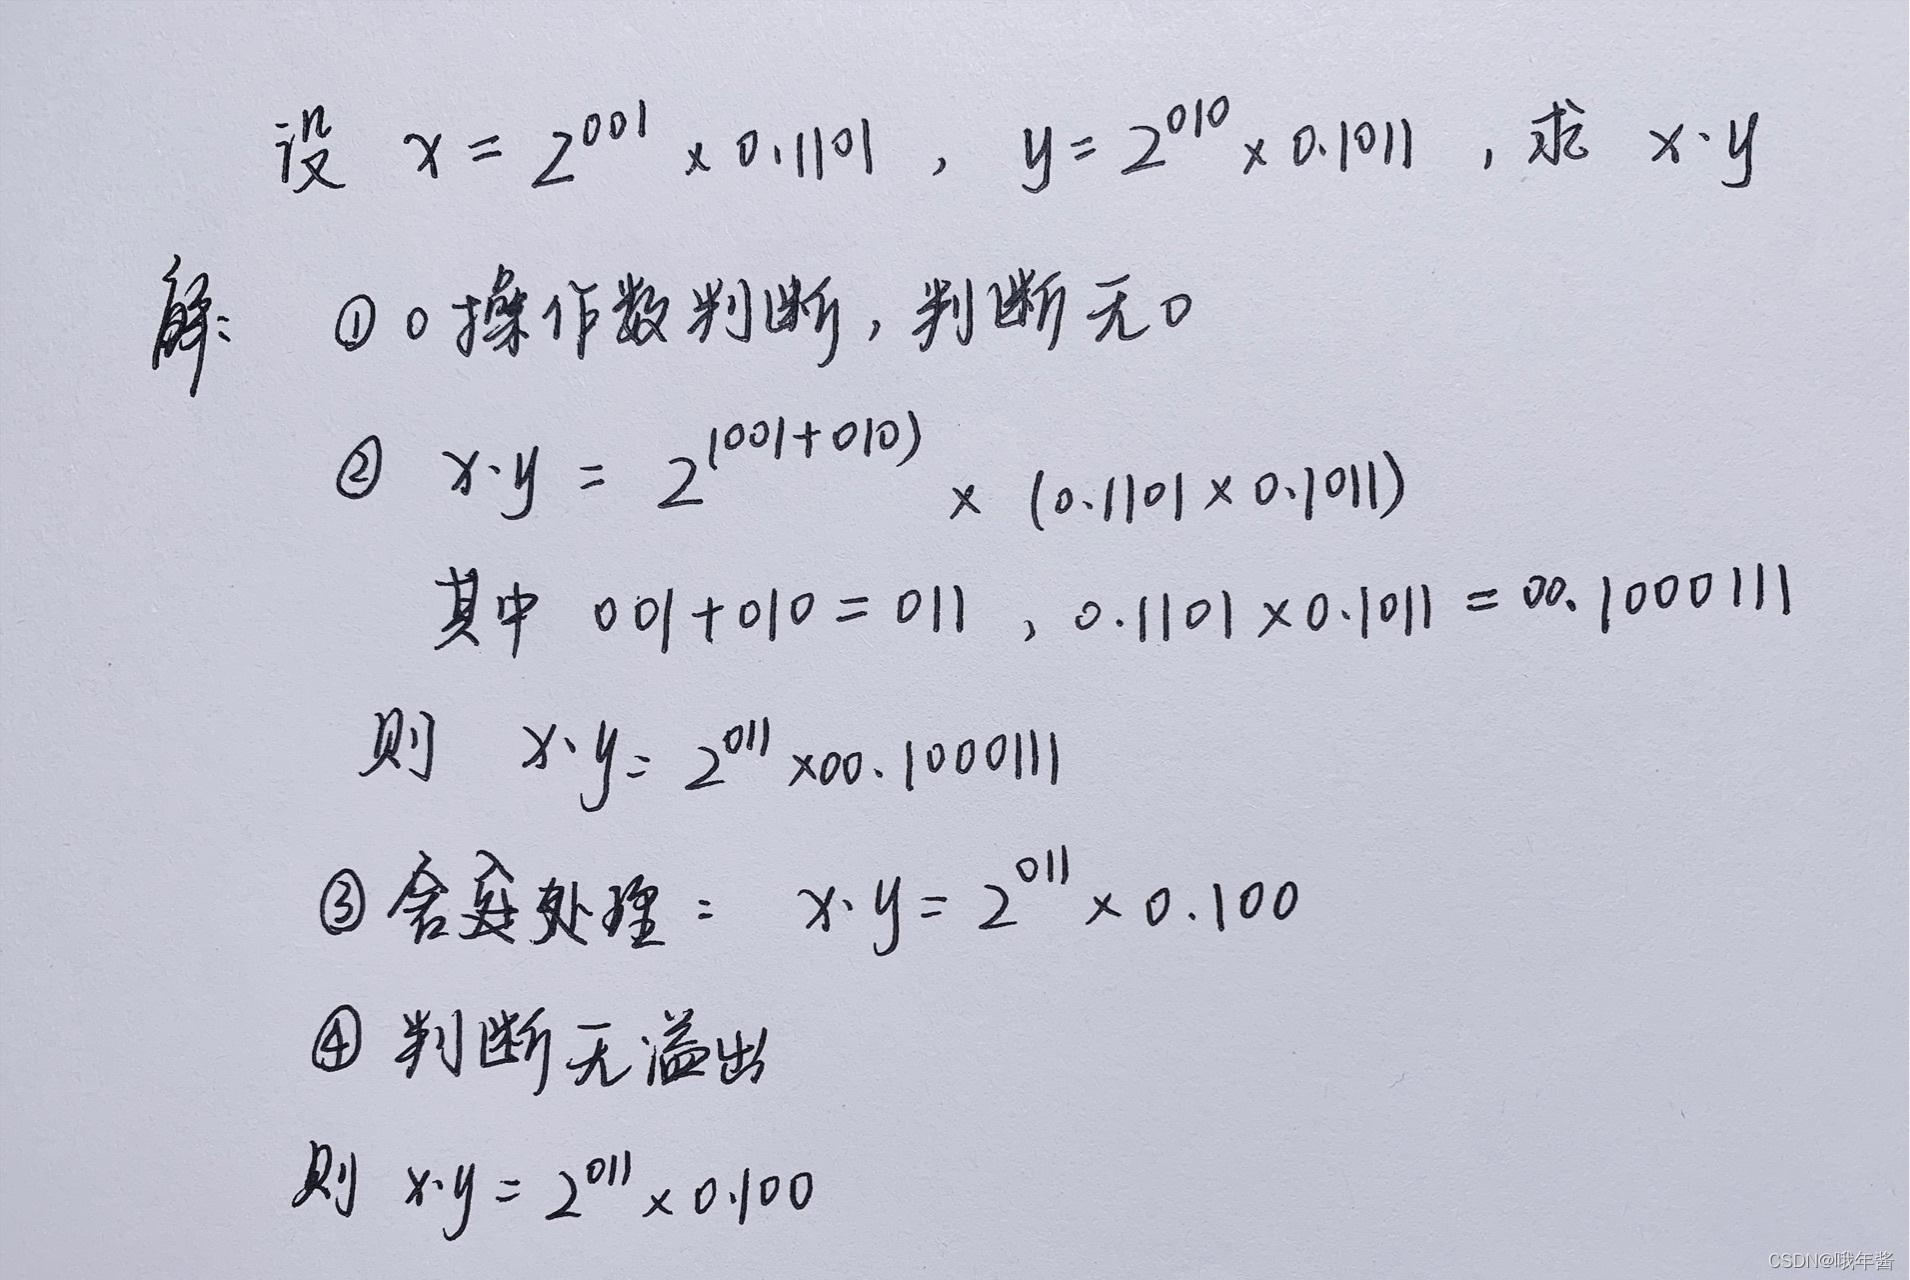 设 x = 2^001 × 0.1101 , y = 2^010 × 0.1011 , 求 x·y
解: ① 0操作数判断, 判断无0
② x·y = 2^(001+010) × (0.1101 × 0.1011)
其中 001+010 = 011 , 0.1101 × 0.1011 = 00.1000111
则 x·y = 2^011 ×00.1000111
③ 舍入处理: x·y = 2^011 × 0.100
④ 判断无溢出
则 x·y = 2^011 × 0.100
CSDN@哦年酱